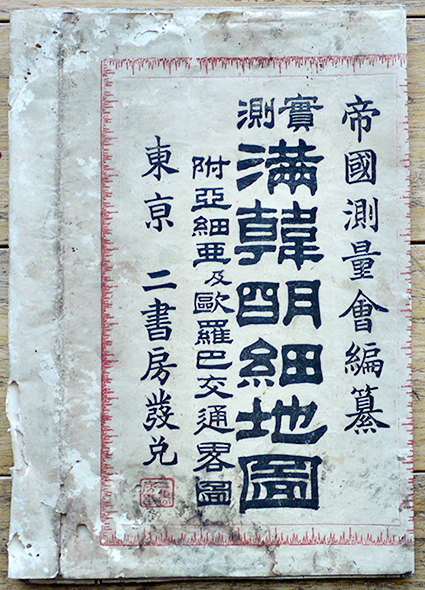 帝國測量會編纂
實測
滿韓明細地圖
附亞細亜及歐羅巴交通畧圖
東京 二書房發兌